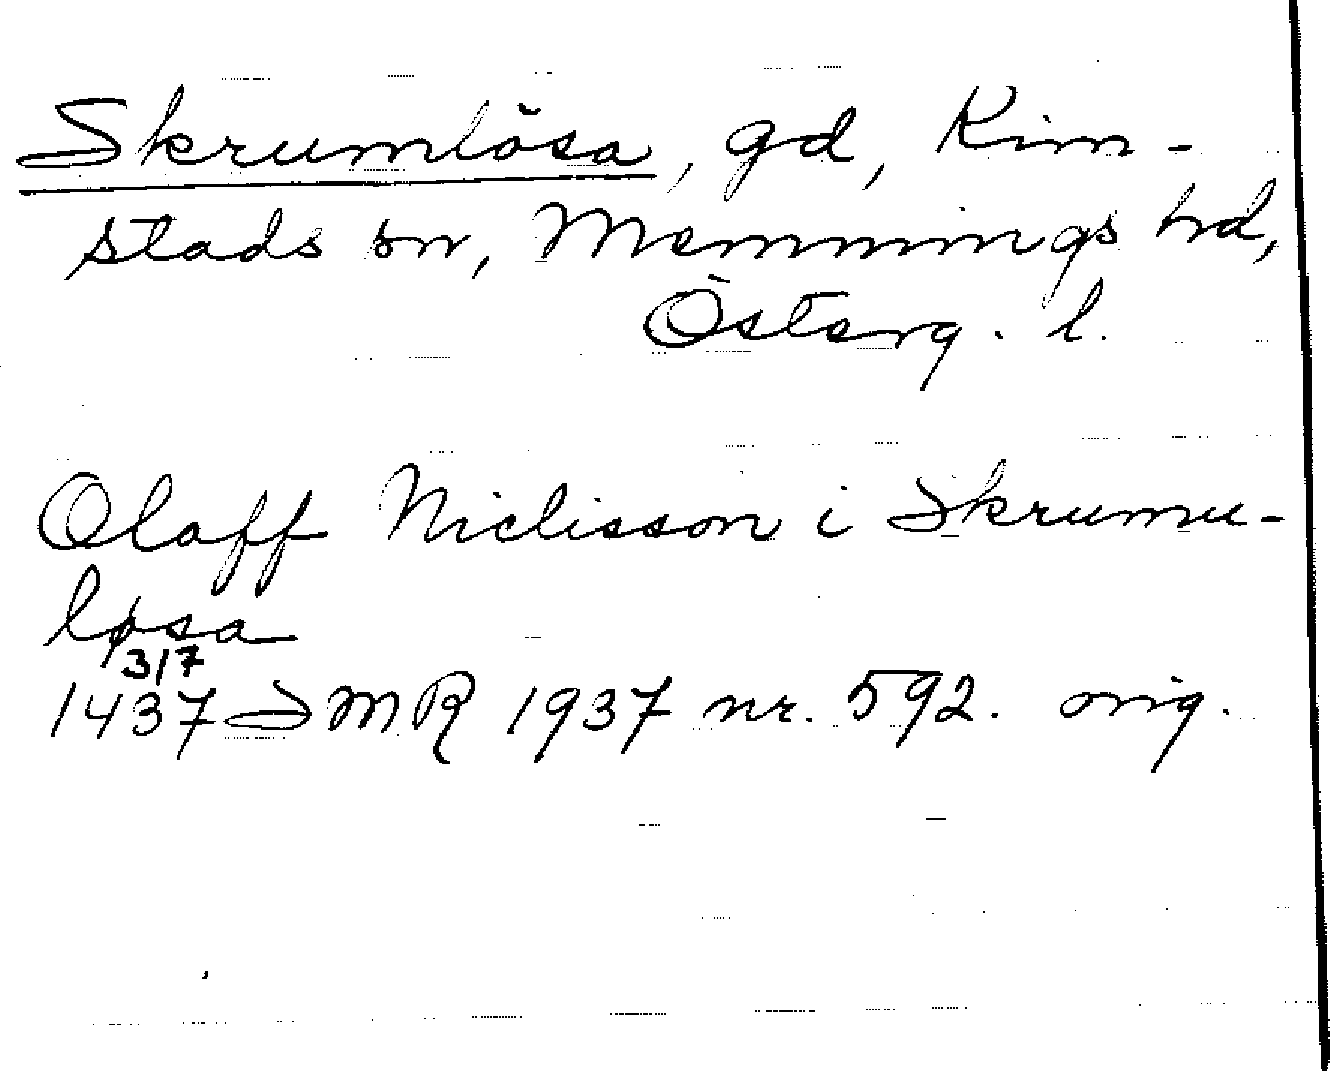 Skrumlösa, gd, Kim-
stads sn, Memmings hd,
Österg. l.
Olaff Niclisson i Skrumu-
løsa
3/7
1437 SMR 1937 nr. 592. orig.